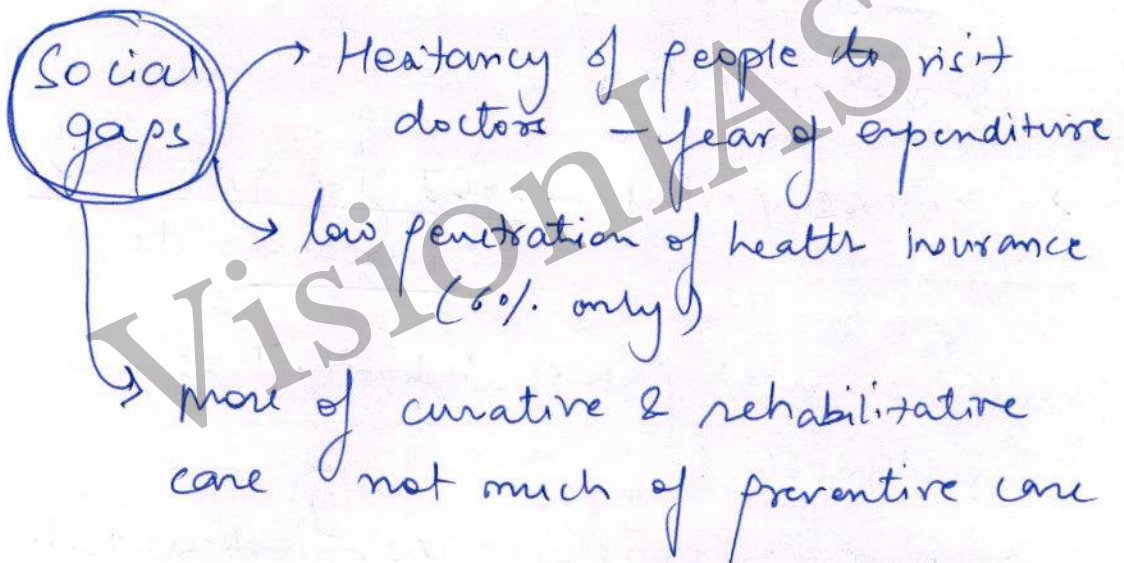 Social
gaps
Hesitancy of people to visit
doctors – fear of expenditure
low penetration of health insurance
(60%. only)
more of curative & rehabilitative
care not much of preventive care
VisionIAS